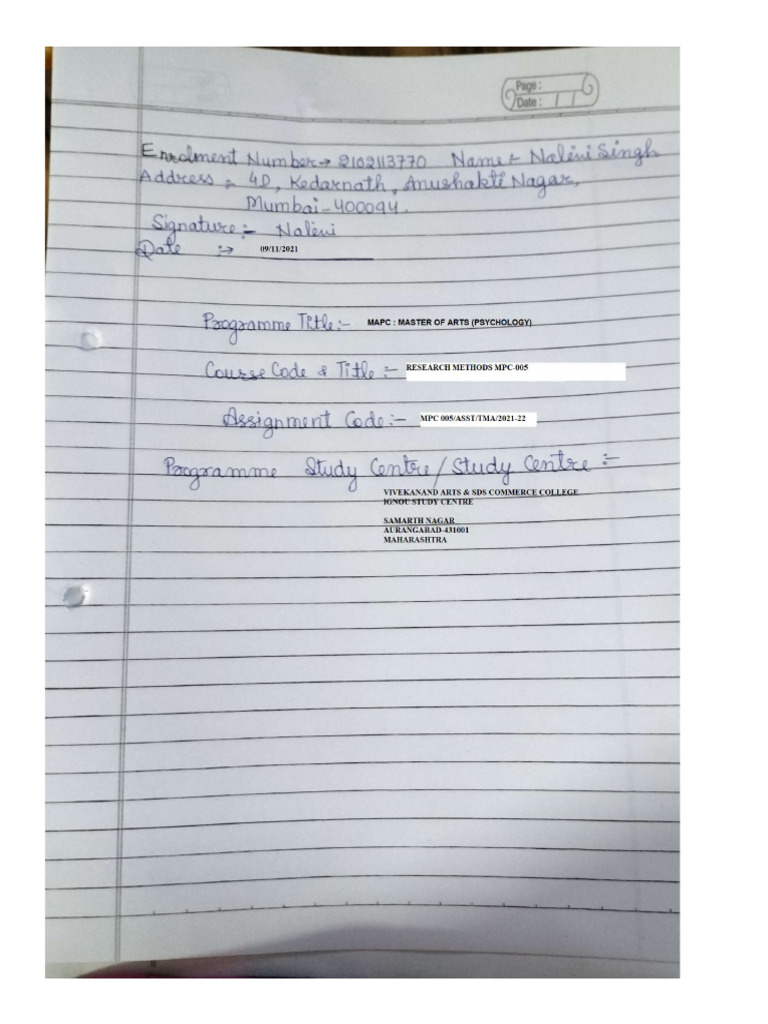 Page :
Date : / /
Enrolment Number → 2102113770 Name :- Nalini Singh
Address :- 4D, Kedarnath, Anushakti Nagar,
Mumbai - 400094.
Signature :- Nalini
Date :→ 09/11/2021
Programme Title :- MAPC : MASTER OF ARTS (PSYCHOLOGY)
Course Code & Title :- RESEARCH METHODS MPC-005
Assignment Code :- MPC 005/ASST/TMA/2021-22
Programme Study Centre / Study Centre :-
VIVEKANAND ARTS & SDS COMMERCE COLLEGE
IGNOU STUDY CENTRE
SAMARTH NAGAR
AURANGABAD-431001
MAHARASHTRA